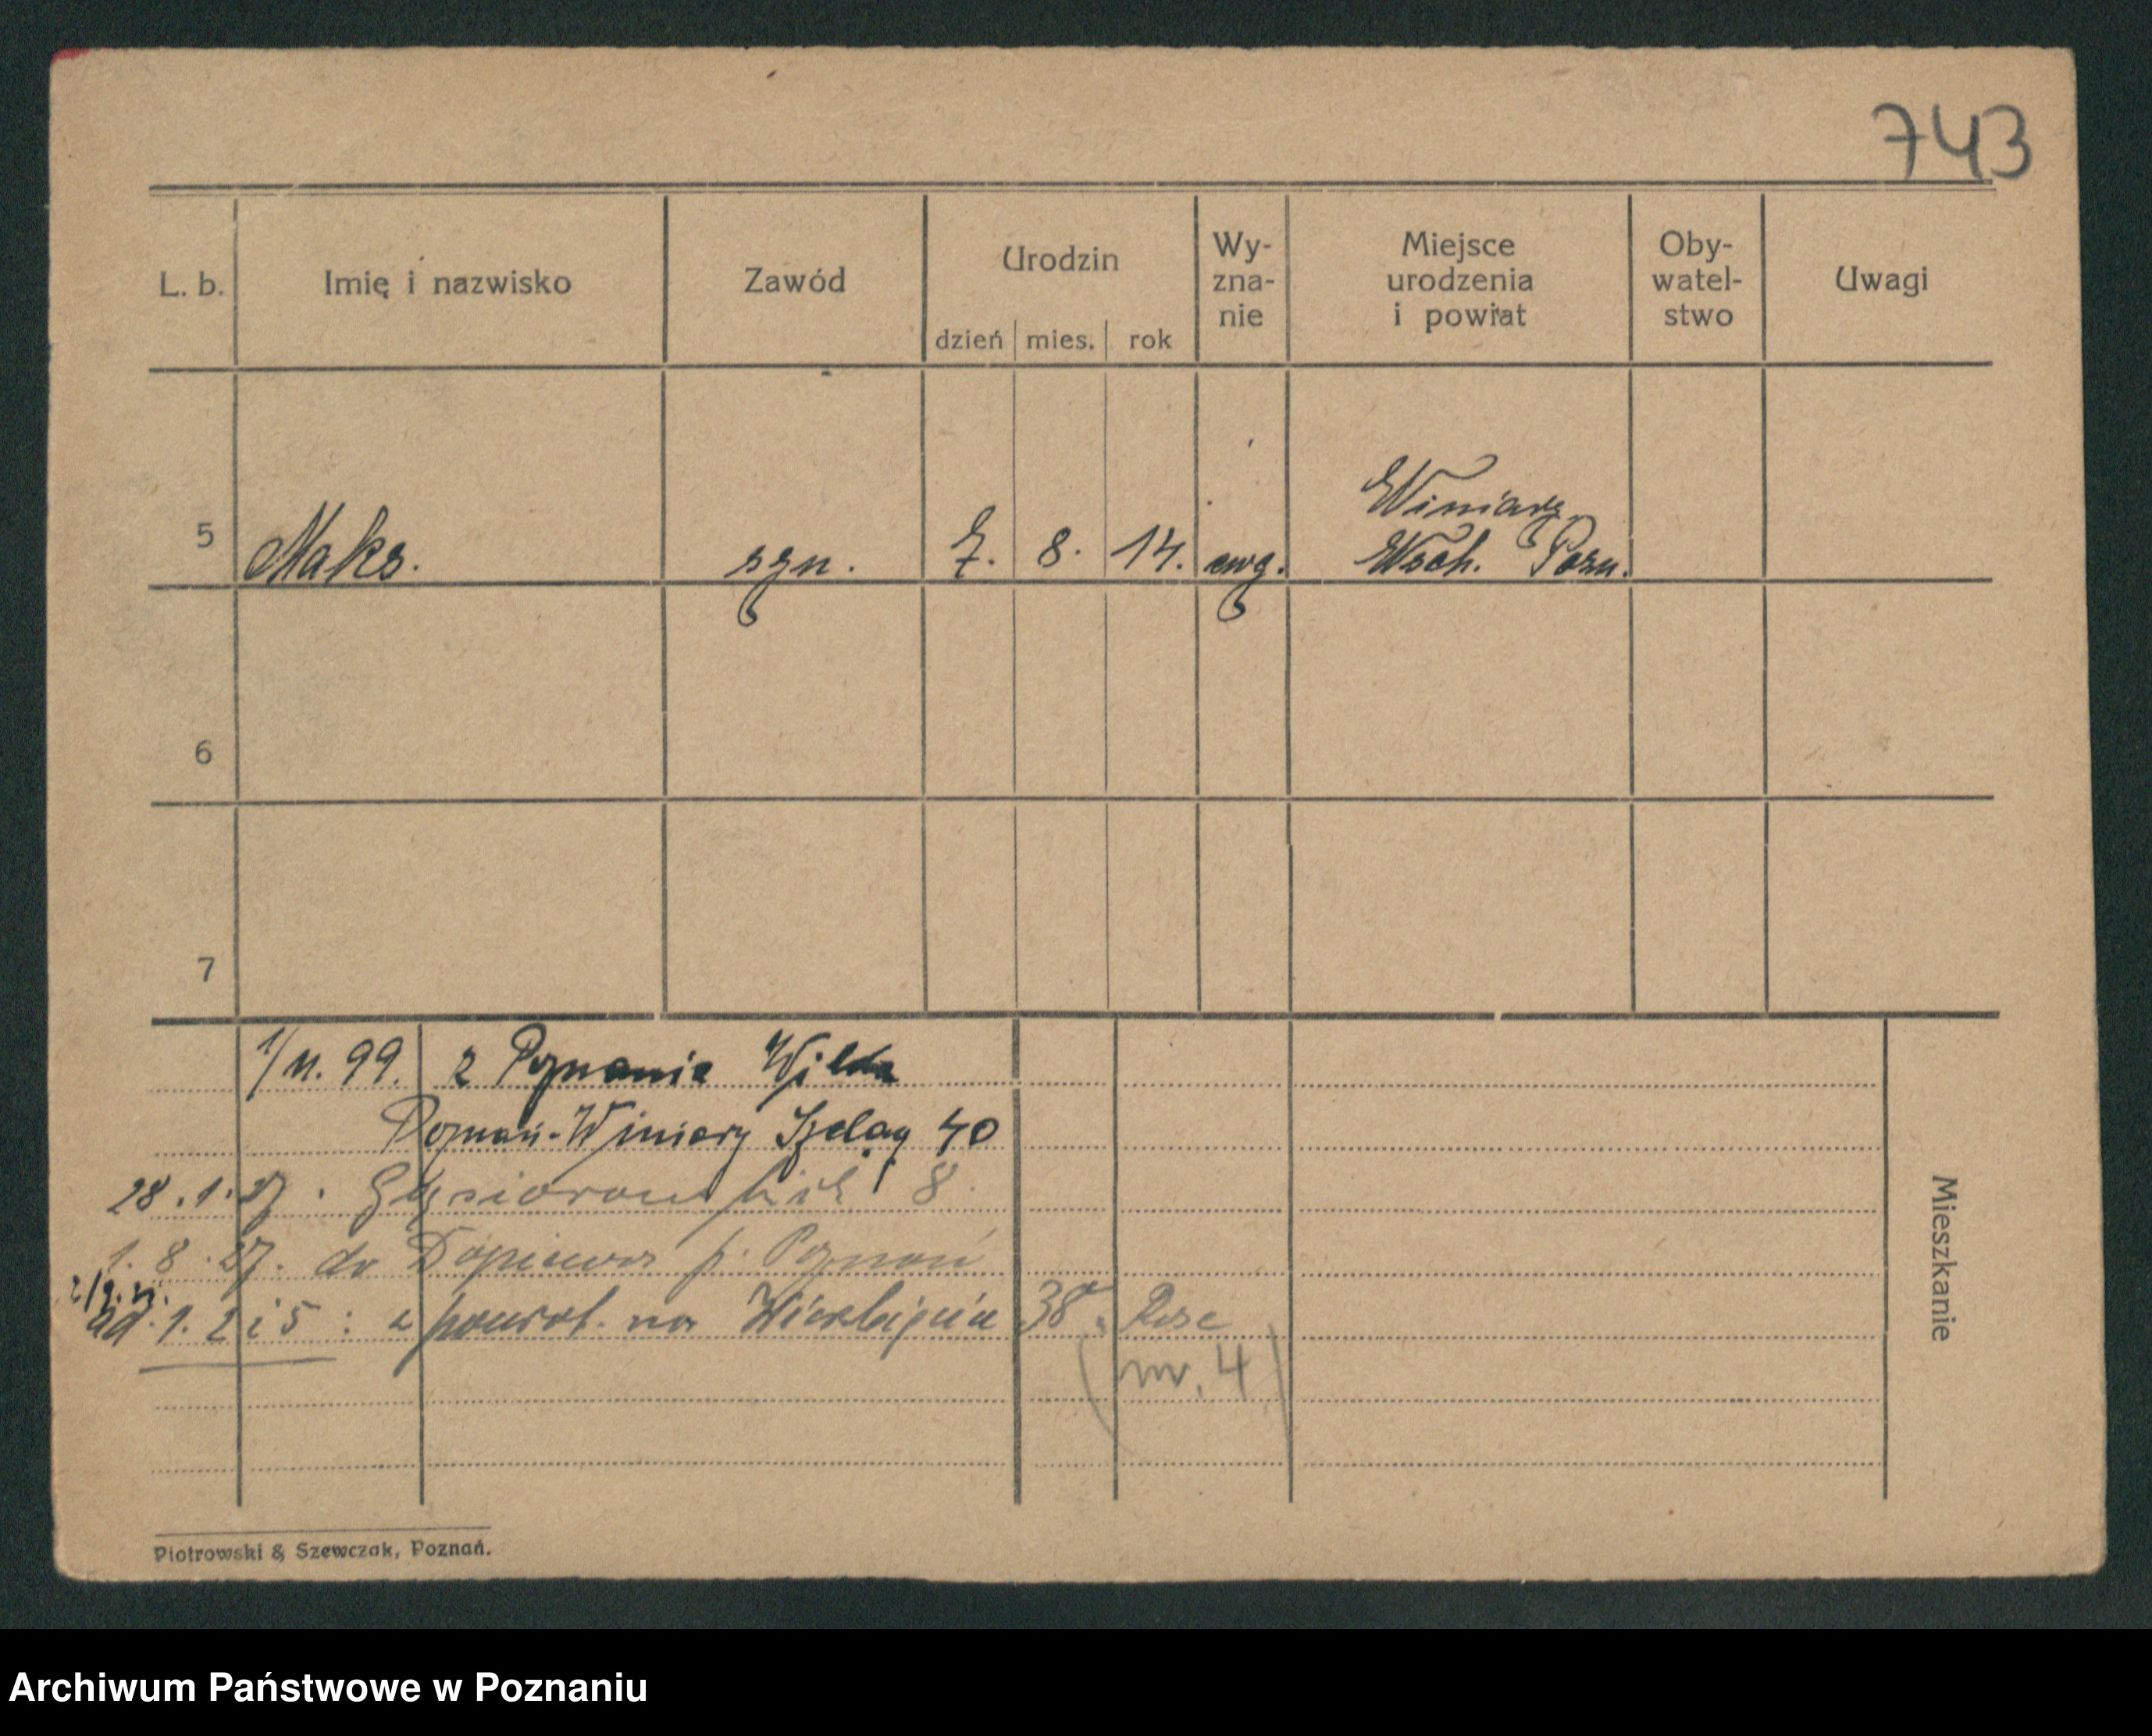 743
L. b. Imię i nazwisko Zawód Urodzin dzień mies. rok Wy-zna-nie Miejsce urodzenia i powiat Oby-watel-stwo Uwagi
Winiary
5 Maks. syn. 7. 8. 14. ewg. Wsch. Pozn.
6
7
1/11. 99. z Poznania Wilda
Poznań-Winiary Szeląg 40
28.1.27. 8.
1.8.27. do Dopiewa p. Poznań
ad. 1. 2 i 5: z powrot. na Wierzbięcia 38a.
(nr. 4)
Mieszkanie
Piotrowski & Szewczak, Poznań.
Archiwum Państwowe w Poznaniu